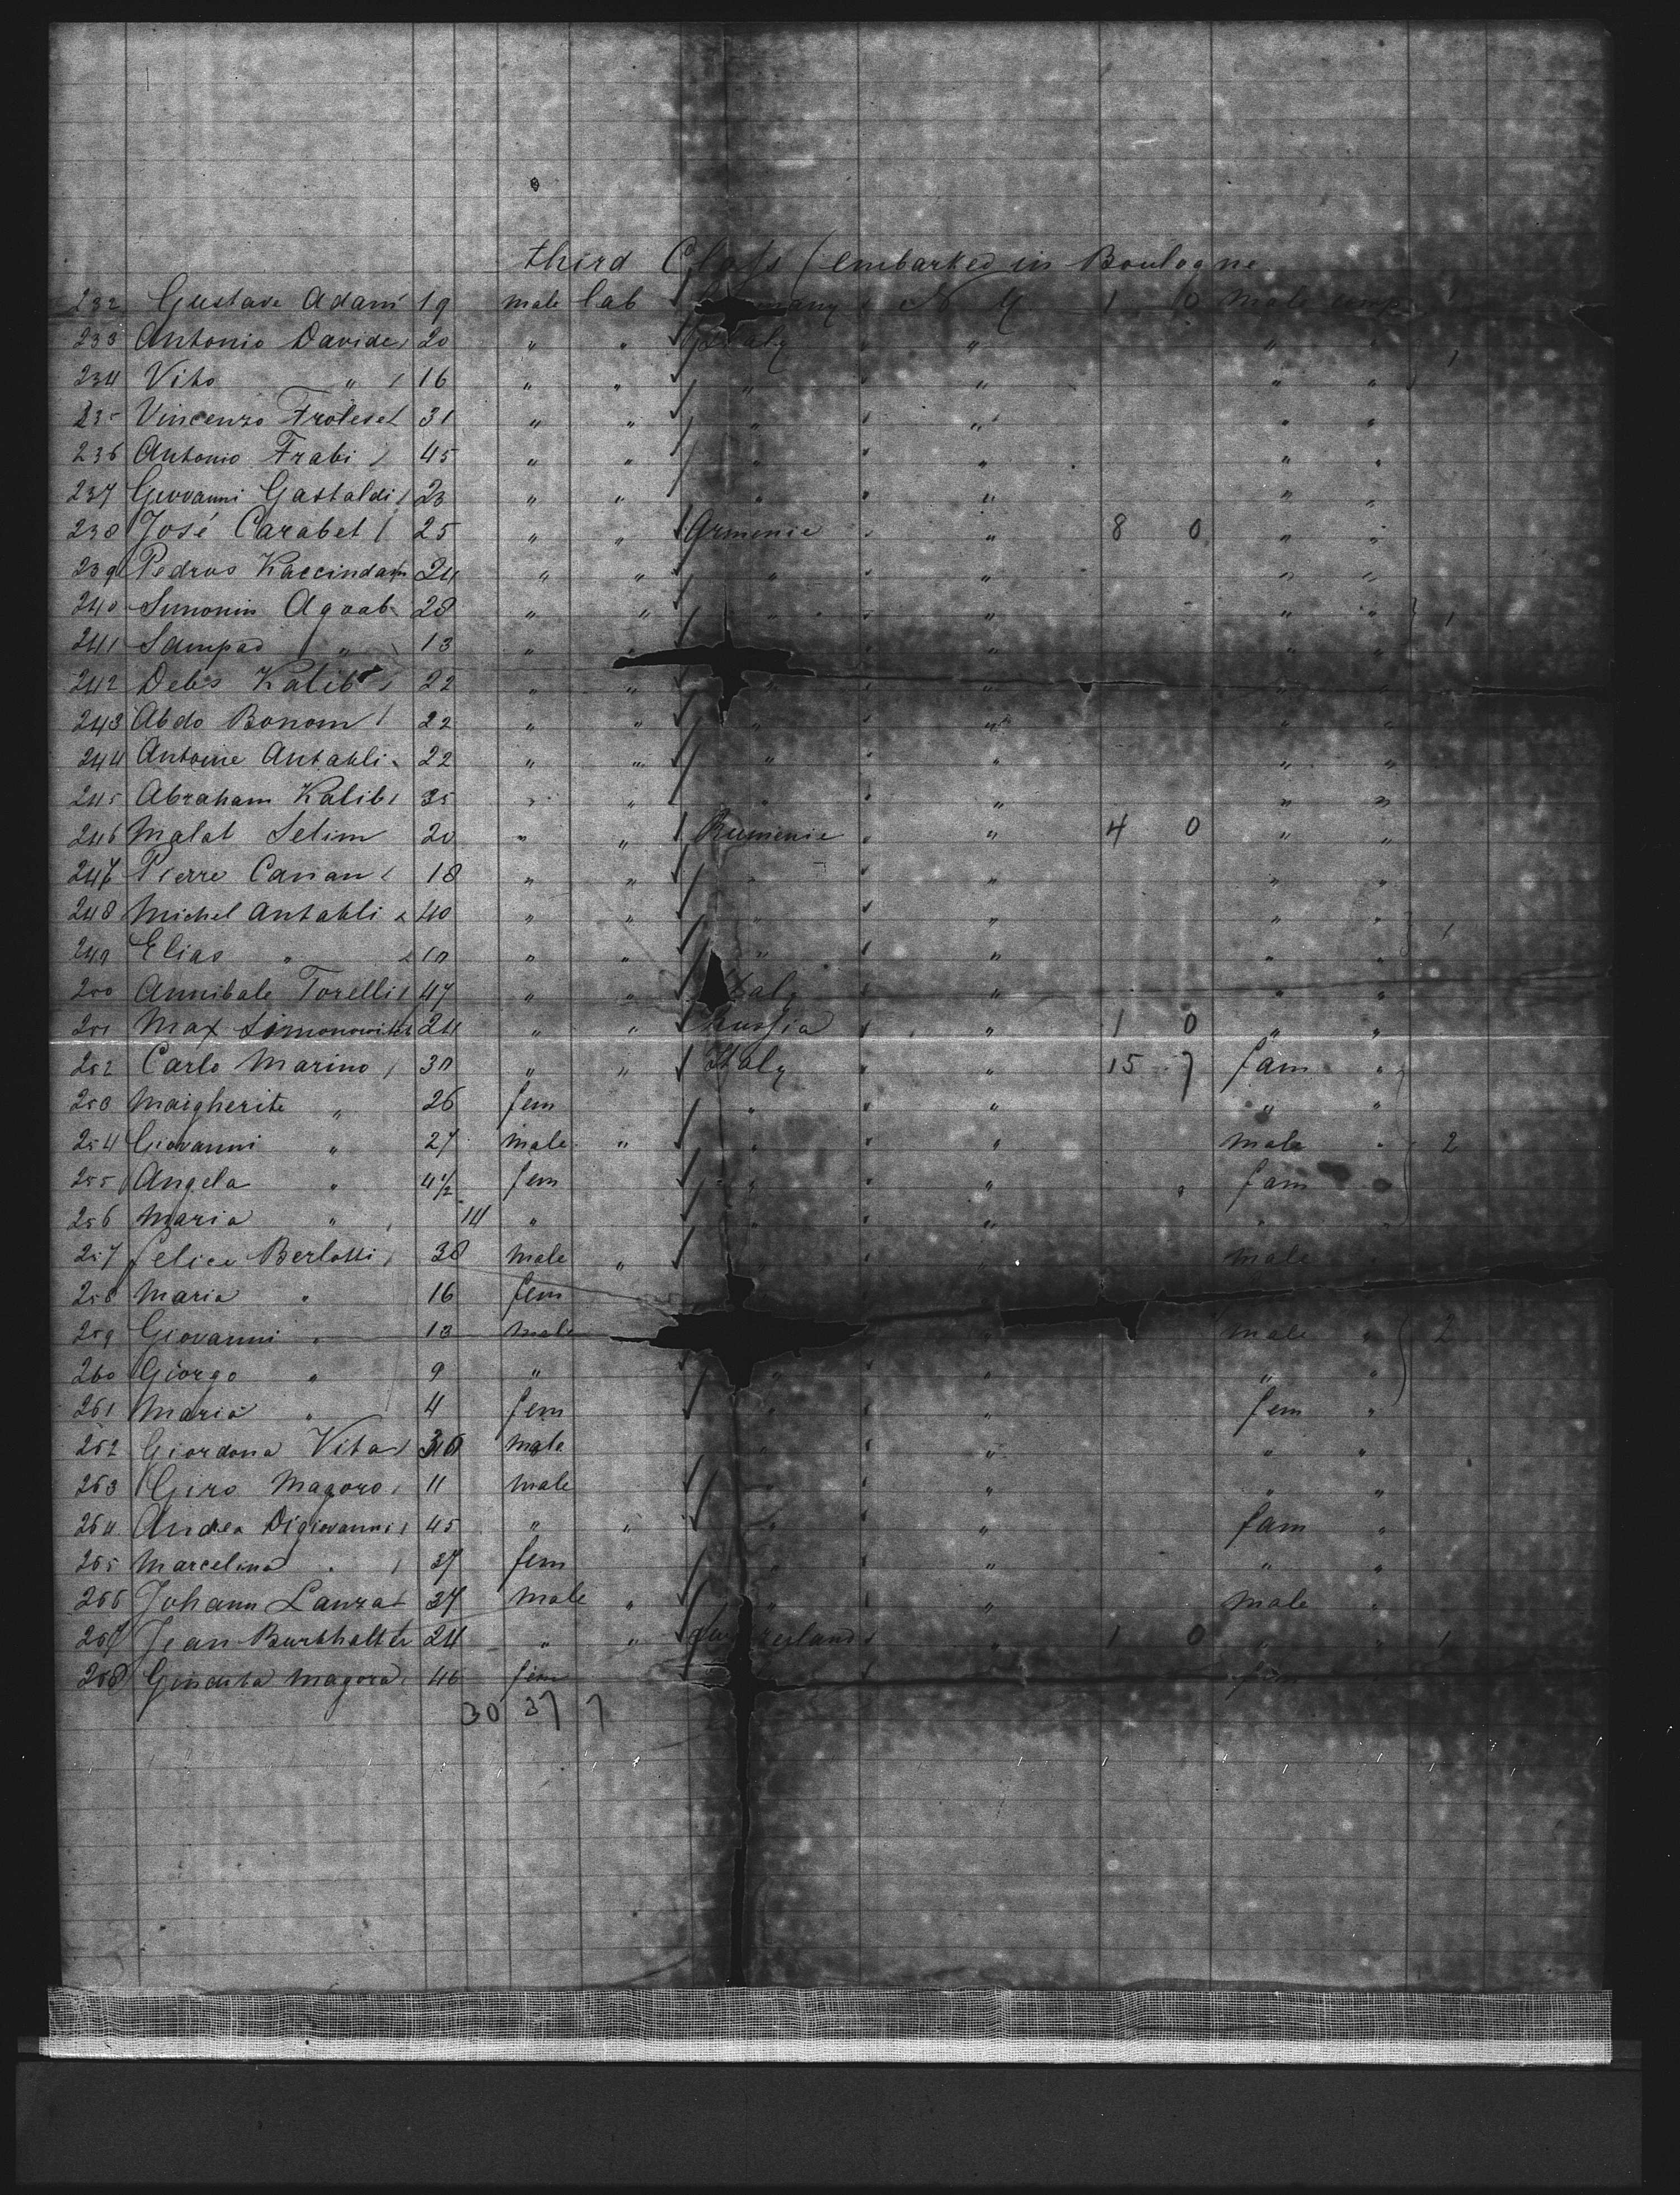 third Class (embarked in Boulogne
232 Gustave Adam 19 male lab N Y 1 0 male comp
233 Antonio Davide 20 " " Italy " " "
234 Vito " 16 " " " " " " 1
235 Vincenzo 31 " " " " " "
236 Antonio Frabi 45 " " " " " "
237 Giovanni Gastaldi 23 " " " " " "
238 José Carabet 25 " " Armenie " 8 0 " "
239 Pedros 24 " " " " " "
240 Simonin Agoab 28 " " " " " "
241 Sampad " 13 " " " " " 1
242 Debs Kalib 22 " " " " " "
243 Abdo Bonom 22 " " " " " "
244 Antoine Antakli 22 " " " " " "
245 Abraham Kalib 35 " " " " " "
246 Malat Selim 20 " " Rumenie " 4 0 " "
247 Pierre Carian 18 " " " " " "
248 Michel Antakli 40 " " " " " "
249 Elias " " " " " " " 1
250 Annibale Torelli 47 " " Italy " " "
251 Max Simonowitch 24 " " Russia " 1 0 " "
252 Carlo Marino 30 " " Italy " 15 7 fam "
253 Maigherite " 26 fem " " " "
254 Giovanni " 27 male " " " male " 2
255 Angela " 4½ fem " " fam "
256 Maria " 14 " " " "
257 Felice Berlotti 38 male " " " male
258 Maria " 16 fem
259 Giovanni " 13 male " male " 2
260 Giorgo " 9 " " " " "
261 Maria " 4 fem " " fem "
262 Giordona Vita male " " " "
263 Giro Magoro 11 male " " " "
264 Andrea Digiovanni 45 " " " " fam "
265 Marcelina " 37 fem " " " "
266 Johann Lanza 37 male " " " male "
267 Jean Burkhalter 24 " " " 1 0 " " 1
268 Magora 46 fem
30 37 7